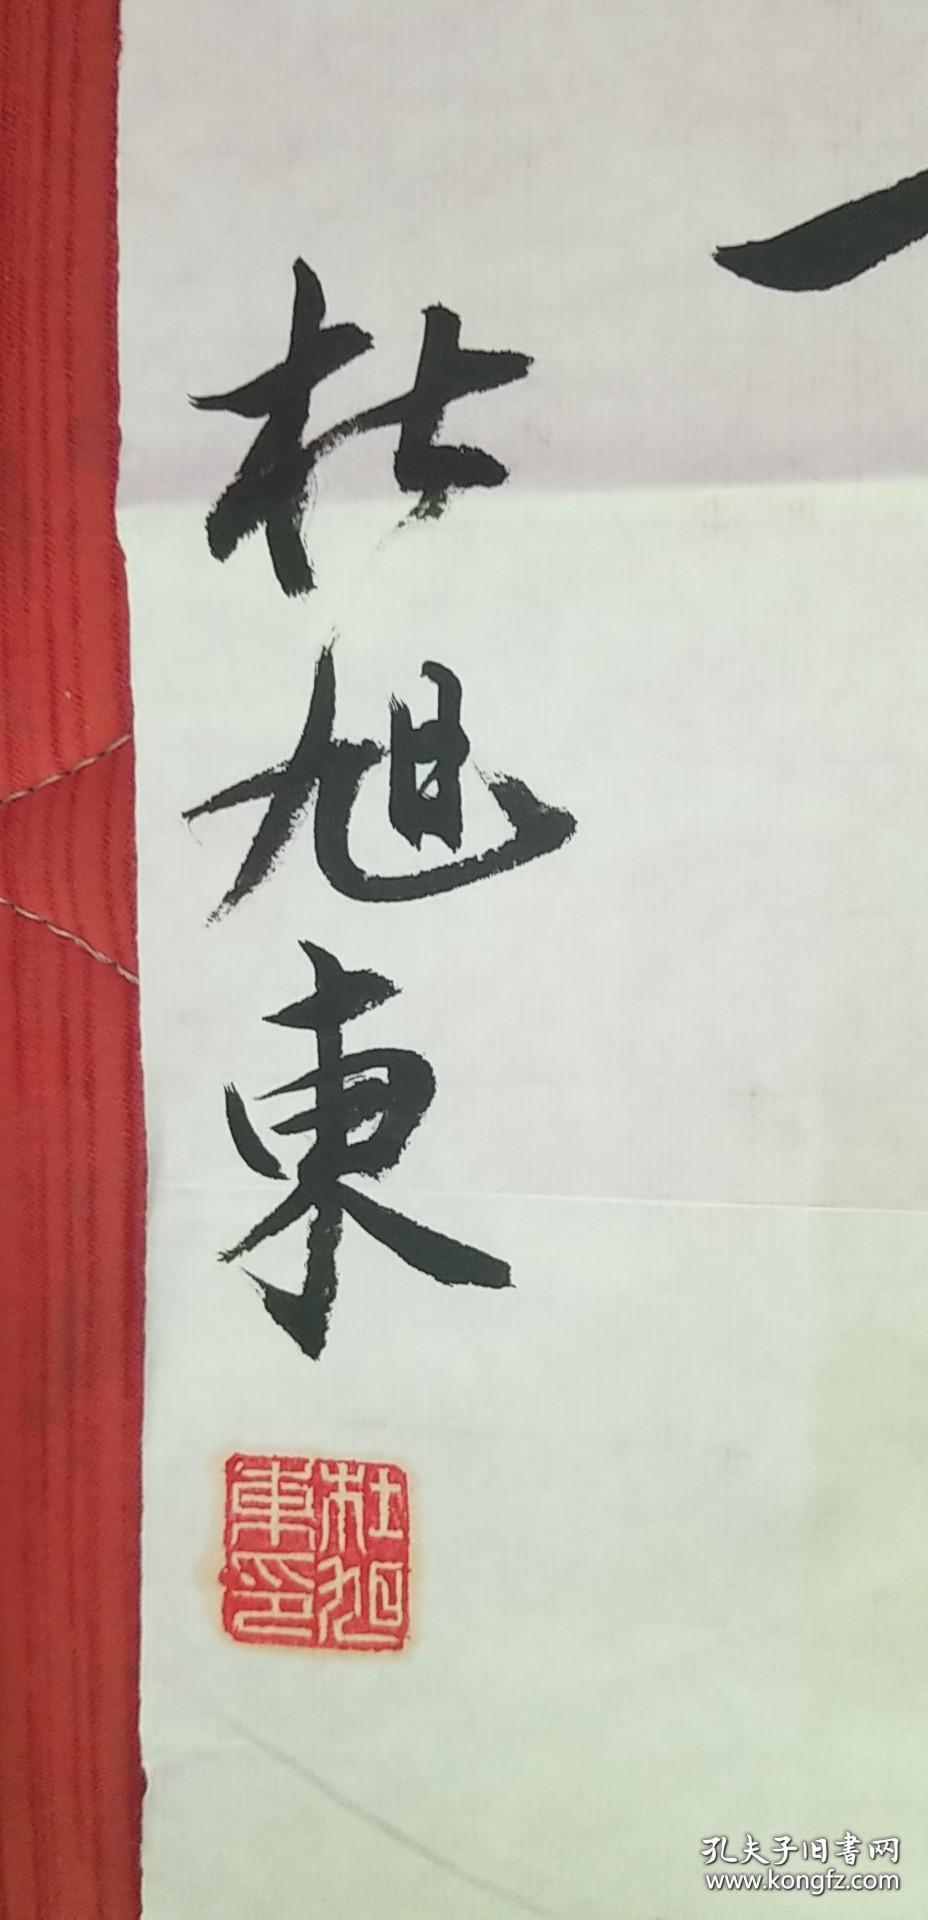 杜旭東
杜旭
東印
孔夫子旧書网
www.kongfz.com